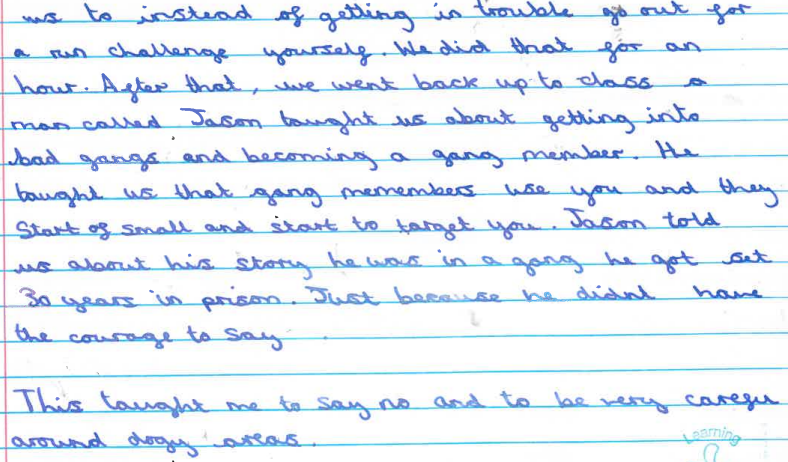 us to instead of getting in trouble go out for
a run challenge yourself. We did that for an
hour. After that, we went back up to class a
man called Jason taught us about getting into
bad gangs and becoming a gang member. He
taught us that gang memembers use you and they
Start of small and start to target you. Jason told
us about his story he was in a gang he got set
30 years in prison. Just because he didnt have
the courage to say
This taught me to say no and to be very carefu
around dogy areas.
Learning